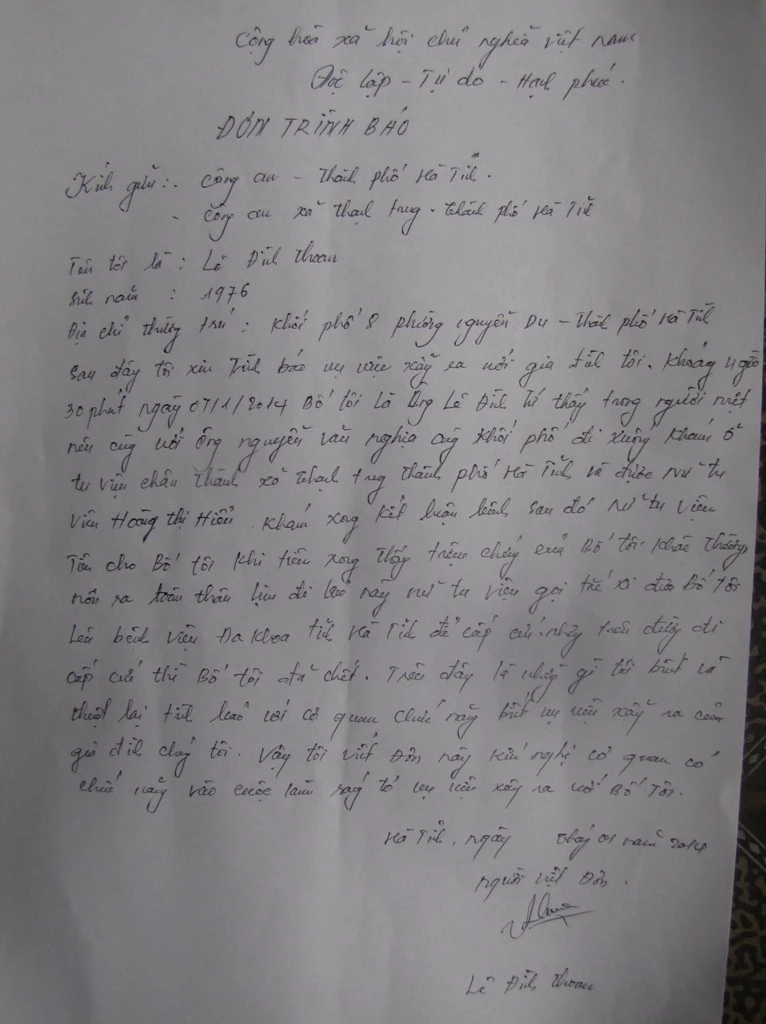 Cộng hoà xã hội chủ nghĩa việt nam
Độc lập - Tự do - Hạnh phúc.
ĐƠN TRÌNH BÁO
Kính gửi: - công an - thành phố Hà Tĩnh.
- công an xã thạch trung - thành phố Hà Tĩnh
Tên tôi là : Lê Đình Thoan
Sinh năm : 1976
Địa chỉ thường trú : Khối phố 8 phường nguyễn Du - Thành phố Hà Tĩnh
Sau đây tôi xin trình báo vụ việc xẩy ra với gia đình tôi. Khoảng 4 giờ
30 phút ngày 07/1/2014 Bố tôi là Ông Lê Đình thấy trong người mệt
nên cùng với ông nguyễn văn nghĩa cùng khối phố đi xuống khám ở
tu viện chân thành xã thạch trung thành phố Hà Tĩnh và được nữ tu
viên Hoàng Thị Hiểu. Khám xong kết luận bệnh sau đó nữ tu viện
Tiêm cho Bố tôi khi tiêm xong thấy triệu chứng của Bố tôi khác thường
nôn ra toàn thân lịm đi lúc này nữ tu viện gọi tắc xi đưa Bố tôi
lên bệnh viện Đa khoa tỉnh Hà Tĩnh để cấp cứu nhưng trên đường đi
cấp cứu thì Bố tôi đã chết. Trên đây là những gì tôi biết và
thuật lại với cơ quan chức năng biết vụ việc xẩy ra của
gia đình chúng tôi. Vậy tôi viết Đơn này kiến nghị cơ quan có
chức năng vào cuộc làm sáng tỏ vụ việc xẩy ra với Bố Tôi.
Hà Tĩnh, ngày tháng 01 năm 2014
người viết Đơn.
Lê Đình Thoan